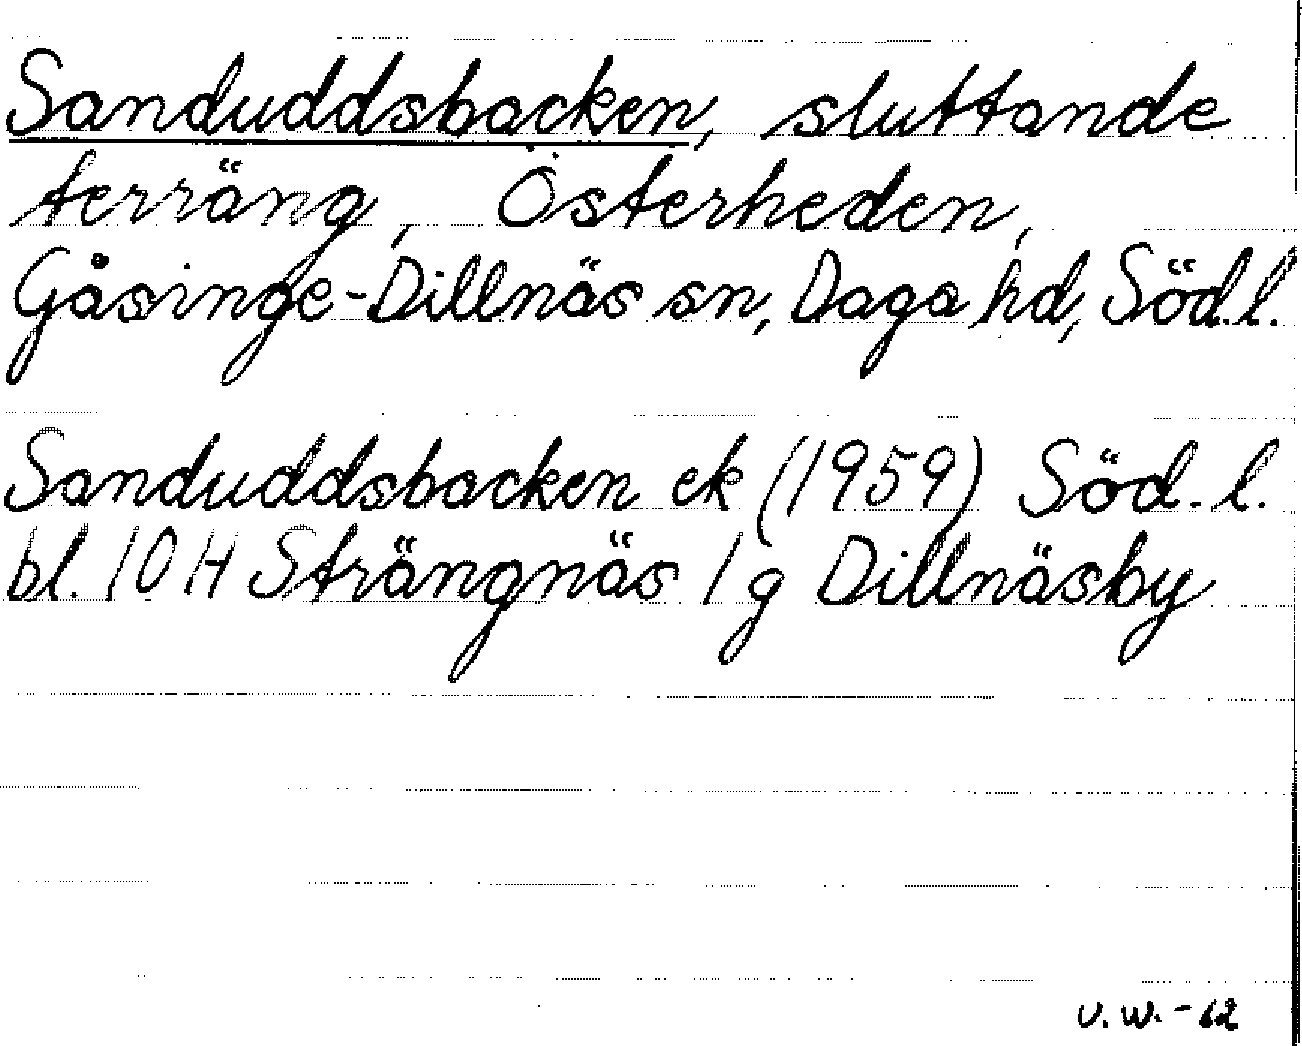 Sanduddsbacken, sluttande
terräng, Österheden,
Gåsinge-Dillnäs sn, Daga hd, Söd.l.
Sanduddsbacken ek (1959) Söd.l.
bl. 10H Strängnäs 1g Dillnäsby
U.W.-62